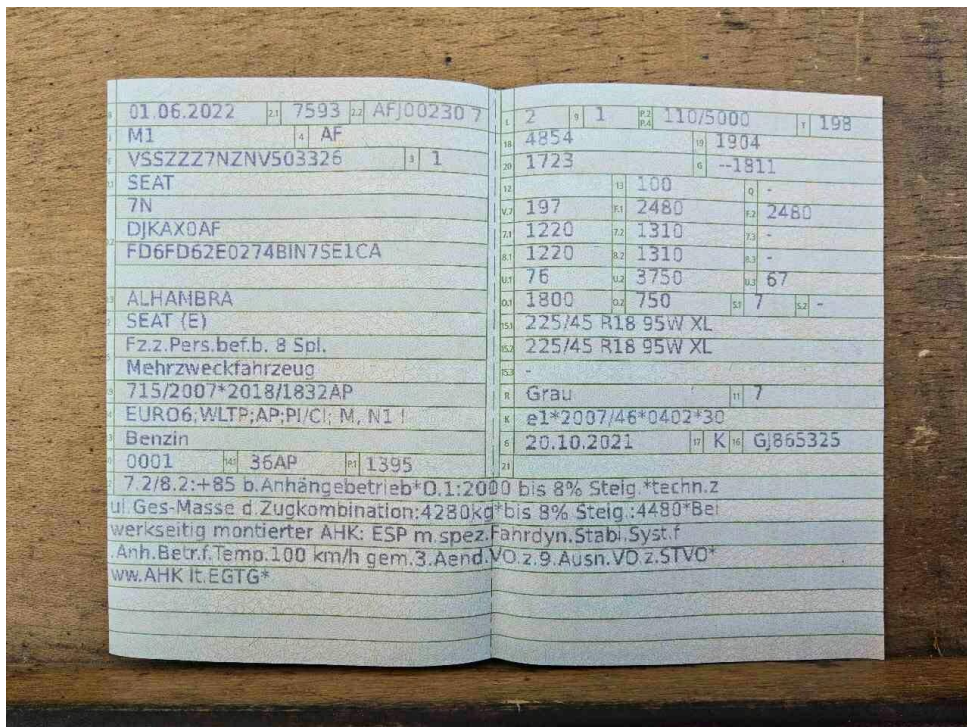 01.06.2022 2.1 7593 2.2 AFJ00230 7
M1 4 AF
VSSZZZ7NZNV503326 3 1
SEAT
7N
DJKAX0AF
FD6FD62E0274BIN7SE1CA
ALHAMBRA
SEAT (E)
Fz.z.Pers.bef.b. 8 Spl.
Mehrzweckfahrzeug
715/2007*2018/1832AP
EURO6;WLTP;AP;PI/CI; M, N1 I
Benzin
0001 14.1 36AP P.1 1395
L 2 9 1 P.2 P.4 110/5000 T 198
18 4854 19 1904
20 1723 G --1811
12 13 100 Q -
V.7 197 F.1 2480 F.2 2480
7.1 1220 7.2 1310 7.3 -
8.1 1220 8.2 1310 8.3 -
U.1 76 U.2 3750 U.3 67
O.1 1800 O.2 750 S.1 7 S.2 -
15.1 225/45 R18 95W XL
15.2 225/45 R18 95W XL
15.3 -
R Grau 11 7
K e1*2007/46*0402*30
6 20.10.2021 17 K 16 GJ865325
21
7.2/8.2:+85 b.Anhängebetrieb*O.1:2000 bis 8% Steig.*techn.z
ul.Ges-Masse d.Zugkombination:4280kg*bis 8% Steig.:4480*Bei
werkseitig montierter AHK: ESP m.spez.Fahrdyn.Stabi.Syst.f
.Anh.Betr.f.Temp.100 km/h gem.3.Aend.VO.z.9.Ausn.VO.z.STVO*
ww.AHK lt.EGTG*